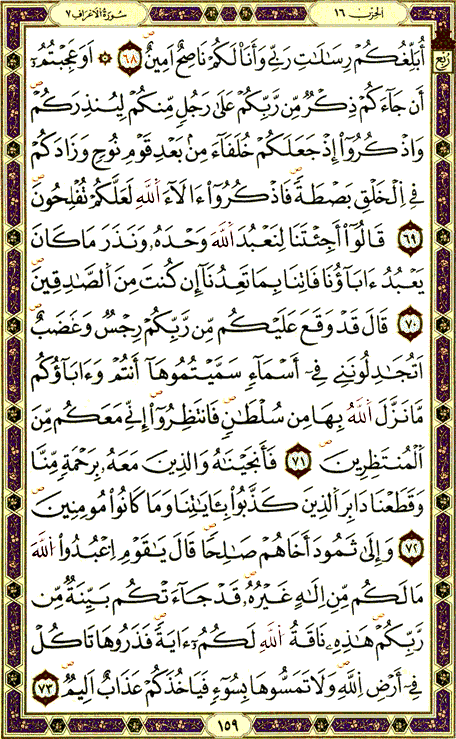 سُورَةُ الأَعْرَافِ ٧
الحزب ١٦
ربع
أُبَلِّغُكُمْ رِسَالَاتِ رَبِّي وَأَنَا لَكُمْ نَاصِحٌ أَمِينٌ ٦٨ ۞ أَوَعَجِبْتُمُ
أَن جَاءَكُمْ ذِكْرٌ مِّن رَّبِّكُمْ عَلَى رَجُلٍ مِّنكُمْ لِيُنذِرَكُمْ
وَاذْكُرُوا إِذْ جَعَلَكُمْ خُلَفَاءَ مِنْ بَعْدِ قَوْمِ نُوحٍ وَزَادَكُمْ
فِي الْخَلْقِ بَصْطَةً فَاذْكُرُوا ءَالَاءَ اللَّهِ لَعَلَّكُمْ تُفْلِحُونَ
٦٩ قَالُوا أَجِئْتَنَا لِنَعْبُدَ اللَّهَ وَحْدَهُ وَنَذَرَ مَا كَانَ
يَعْبُدُ ءَابَاؤُنَا فَاتِنَا بِمَا تَعِدُنَا إِن كُنتَ مِنَ الصَّادِقِينَ
٧٠ قَالَ قَدْ وَقَعَ عَلَيْكُم مِّن رَّبِّكُمْ رِجْسٌ وَغَضَبٌ
اَتُجَادِلُونَنِي فِي أَسْمَاءٍ سَمَّيْتُمُوهَا أَنتُمْ وَءَابَاؤُكُم
مَا نَزَّلَ اللَّهُ بِهَا مِن سُلْطَانٍ فَانتَظِرُوا إِنِّي مَعَكُم مِّنَ
الْمُنتَظِرِينَ ٧١ فَأَنجَيْنَاهُ وَالَّذِينَ مَعَهُ بِرَحْمَةٍ مِّنَّا
وَقَطَعْنَا دَابِرَ الَّذِينَ كَذَّبُوا بِـَٔايَاتِنَا وَمَا كَانُوا مُومِنِينَ
٧٢ وَإِلَى ثَمُودَ أَخَاهُمْ صَالِحًا قَالَ يَاقَوْمِ اِعْبُدُوا اللَّهَ
مَا لَكُم مِّنِ اِلَهٍ غَيْرُهُ قَدْ جَاءَتْكُم بَيِّنَةٌ مِّن
رَّبِّكُمْ هَذِهِ نَاقَةُ اللَّهِ لَكُمُ ءَايَةً فَذَرُوهَا تَاكُلْ
فِي أَرْضِ اِللَّهِ وَلَا تَمَسُّوهَا بِسُوءٍ فَيَاخُذَكُمْ عَذَابٌ اَلِيمٌ ٧٣
١٥٩